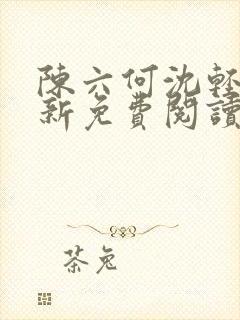 陳六何沈輕
新免費閱讀
茶兔